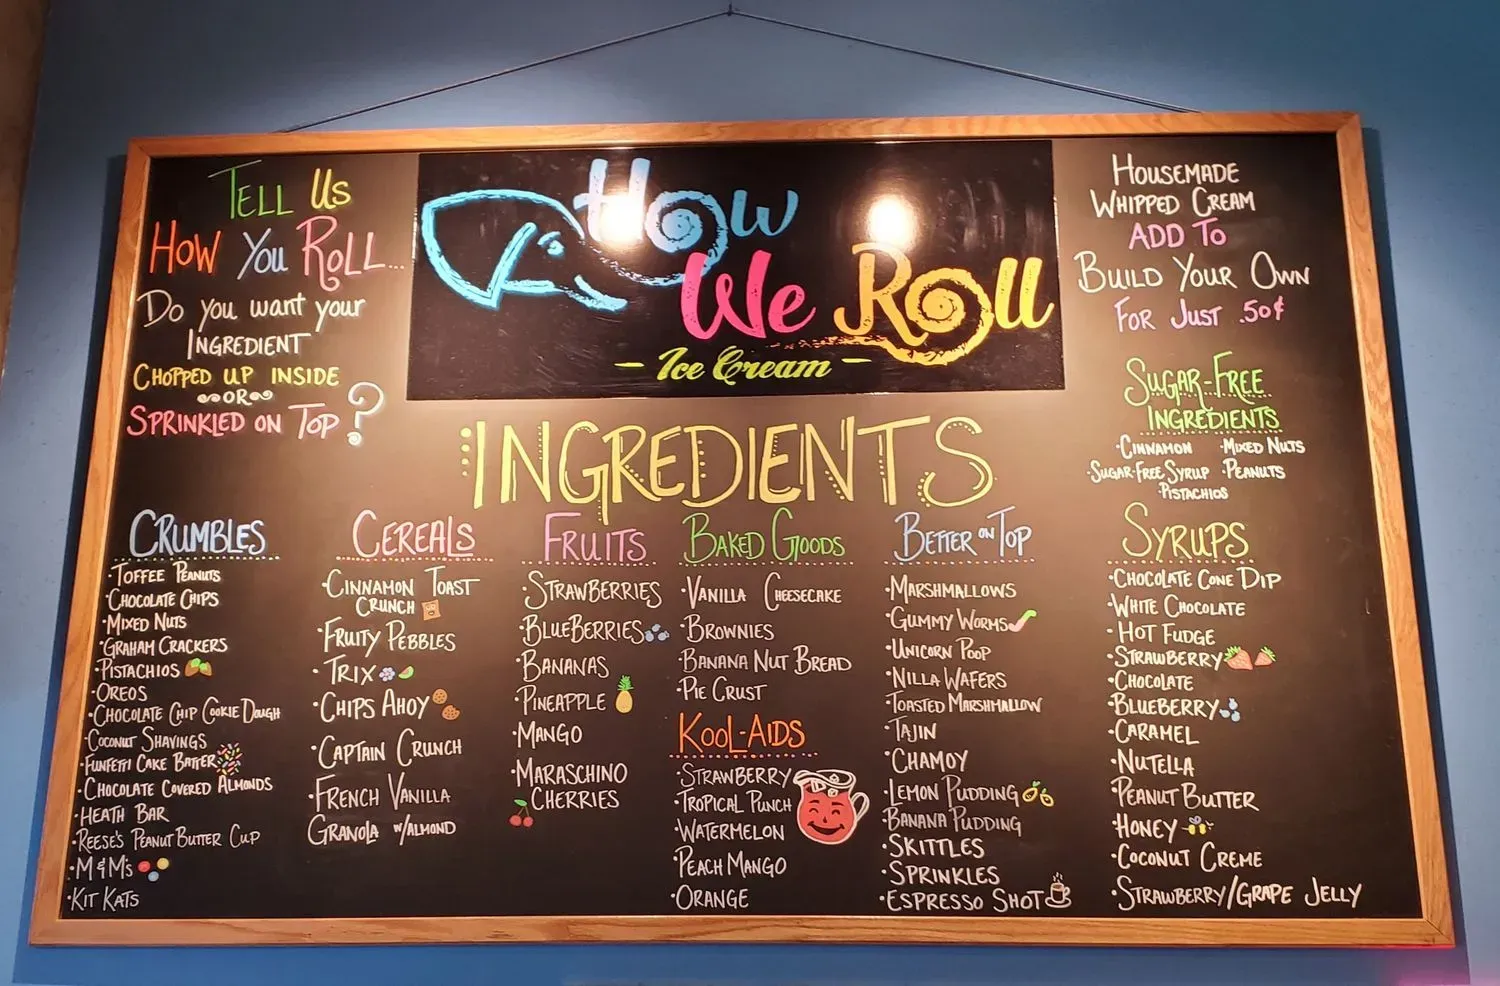 Tell Us
How You Roll...
Do you want your
Ingredient
Chopped up inside
or
Sprinkled on Top?
How
We Roll
- Ice Cream -
Housemade
Whipped Cream
Add To
Build Your Own
For Just .50¢
Sugar-Free
Ingredients
·Cinnamon ·Mixed Nuts
·Sugar-Free Syrup ·Peanuts
·Pistachios
Ingredients
Crumbles
·Toffee Peanuts
·Chocolate Chips
·Mixed Nuts
·Graham Crackers
·Pistachios
·Oreos
·Chocolate Chip Cookie Dough
·Coconut Shavings
·Funfetti Cake Batter
·Chocolate Covered Almonds
·Heath Bar
·Reese's Peanut Butter Cup
·M&M's
·Kit Kats
Cereals
·Cinnamon Toast
Crunch
·Fruity Pebbles
·Trix
·Chips Ahoy
·Captain Crunch
·French Vanilla
Granola w/Almond
Fruits
·Strawberries
·Blueberries
·Bananas
·Pineapple
·Mango
·Maraschino
Cherries
Baked Goods
·Vanilla Cheesecake
·Brownies
·Banana Nut Bread
·Pie Crust
Kool-Aids
·Strawberry
·Tropical Punch
·Watermelon
·Peach Mango
·Orange
Better on Top
·Marshmallows
·Gummy Worms
·Unicorn Poop
·Nilla Wafers
·Toasted Marshmallow
·Tajin
·Chamoy
·Lemon Pudding
·Banana Pudding
·Skittles
·Sprinkles
·Espresso Shot
Syrups
·Chocolate Cone Dip
·White Chocolate
·Hot Fudge
·Strawberry
·Chocolate
·Blueberry
·Caramel
·Nutella
·Peanut Butter
·Honey
·Coconut Creme
·Strawberry/Grape Jelly